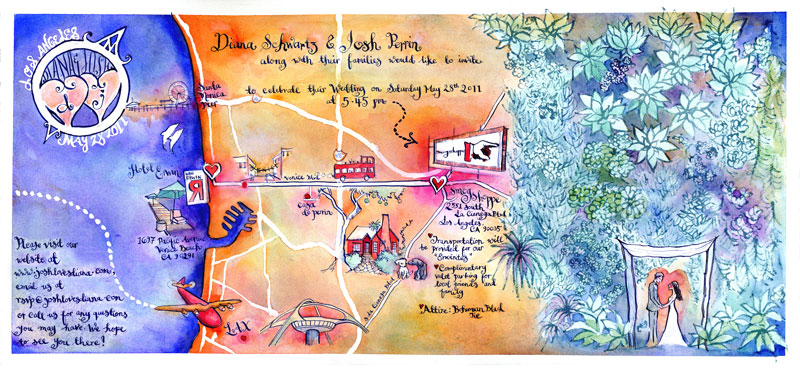 LOS ANGELES
MAY 28 2011
Diana Schwartz & Josh Perrin
along with their families would like to invite
to celebrate their Wedding on Saturday May 28th 2011
at 5:45 pm
Santa
Monica
Pier
Hotel Erwin
1697 Pacific Avenue
Venice Beach
CA 90291
Venice Blvd
casa
de perrin
Smog
Shoppe
2651 South
La Cienega Blvd
Los Angeles,
CA 90035
Transportation will
provided for our
Complimentary
valet parking for
local friends and
family
Attire: Bohemian Blvd
LAX
Please visit our
website at
www.joshlovesdiana.com,
email us at
rsvp@joshlovesdiana.com
or call us for any questions
you may have. We hope
to see you there!